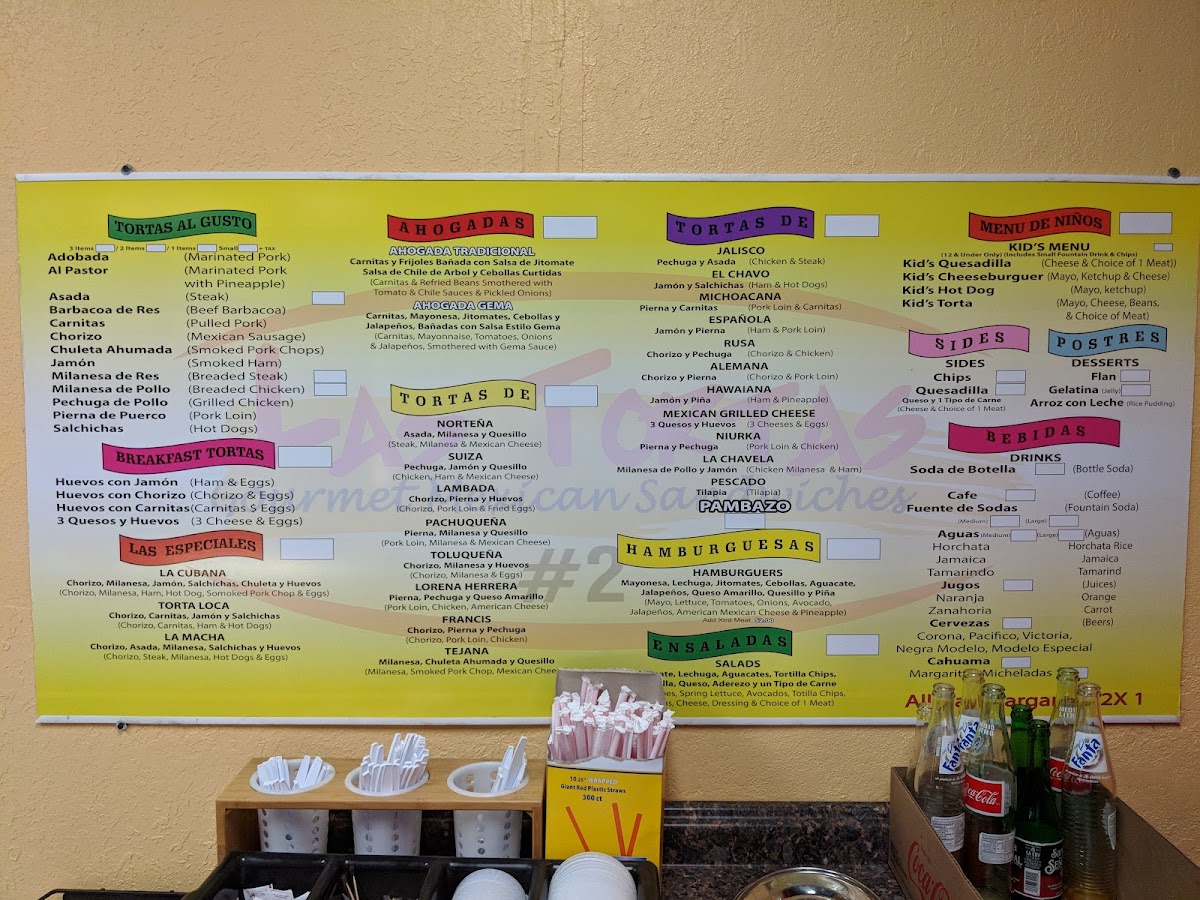 TORTAS AL GUSTO
3 Items / 2 Items / 1 Items Small + TAX
Adobada (Marinated Pork)
Al Pastor (Marinated Pork
with Pineapple)
Asada (Steak)
Barbacoa de Res (Beef Barbacoa)
Carnitas (Pulled Pork)
Chorizo (Mexican Sausage)
Chuleta Ahumada (Smoked Pork Chops)
Jamón (Smoked Ham)
Milanesa de Res (Breaded Steak)
Milanesa de Pollo (Breaded Chicken)
Pechuga de Pollo (Grilled Chicken)
Pierna de Puerco (Pork Loin)
Salchichas (Hot Dogs)
BREAKFAST TORTAS
Huevos con Jamón (Ham & Eggs)
Huevos con Chorizo (Chorizo & Eggs)
Huevos con Carnitas (Carnitas $ Eggs)
3 Quesos y Huevos (3 Cheese & Eggs)
LAS ESPECIALES
LA CUBANA
Chorizo, Milanesa, Jamón, Salchichas, Chuleta y Huevos
(Chorizo, Milanesa, Ham, Hot Dog, Somoked Pork Chop & Eggs)
TORTA LOCA
Chorizo, Carnitas, Jamón y Salchichas
(Chorizo, Carnitas, Ham & Hot Dogs)
LA MACHA
Chorizo, Asada, Milanesa, Salchichas y Huevos
(Chorizo, Steak, Milanesa, Hot Dogs & Eggs)
AHOGADAS
AHOGADA TRADICIONAL
Carnitas y Frijoles Bañada con Salsa de Jitomate
Salsa de Chile de Arbol y Cebollas Curtidas
(Carnitas & Refried Beans Smothered with
Tomato & Chile Sauces & Pickled Onions)
AHOGADA GEMA
Carnitas, Mayonesa, Jitomates, Cebollas y
Jalapeños, Bañadas con Salsa Estilo Gema
(Carnitas, Mayonnaise, Tomatoes, Onions
& Jalapeños, Smothered with Gema Sauce)
TORTAS DE
NORTEÑA
Asada, Milanesa y Quesillo
(Steak, Milanesa & Mexican Cheese)
SUIZA
Pechuga, Jamón y Quesillo
(Chicken, Ham & Mexican Cheese)
LAMBADA
Chorizo, Pierna y Huevos
(Chorizo, Pork Loin & Fried Eggs)
PACHUQUEÑA
Pierna, Milanesa y Quesillo
(Pork Loin, Milanesa & Mexican Cheese)
TOLUQUEÑA
Chorizo, Milanesa y Huevos
(Chorizo, Milanesa & Eggs)
LORENA HERRERA
Pierna, Pechuga y Queso Amarillo
(Pork Loin, Chicken, American Cheese)
FRANCIS
Chorizo, Pierna y Pechuga
(Chorizo, Pork Loin, Chicken)
TEJANA
Milanesa, Chuleta Ahumada y Quesillo
(Milanesa, Smoked Pork Chop, Mexican Chee
TORTAS DE
JALISCO
Pechuga y Asada (Chicken & Steak)
EL CHAVO
Jamón y Salchichas (Ham & Hot Dogs)
MICHOACANA
Pierna y Carnitas (Pork Loin & Carnitas)
ESPAÑOLA
Jamón y Pierna (Ham & Pork Loin)
RUSA
Chorizo y Pechuga (Chorizo & Chicken)
ALEMANA
Chorizo y Pierna (Chorizo & Pork Loin)
HAWAIANA
Jamón y Piña (Ham & Pineapple)
MEXICAN GRILLED CHEESE
3 Quesos y Huevos (3 Cheeses & Eggs)
NIURKA
Pierna y Pechuga (Pork Loin & Chicken)
LA CHAVELA
Milanesa de Pollo y Jamón (Chicken Milanesa & Ham)
PESCADO
Tilapia (Tilapia)
PAMBAZO
HAMBURGUESAS
HAMBURGUERS
Mayonesa, Lechuga, Jitomates, Cebollas, Aguacate,
Jalapeños, Queso Amarillo, Quesillo y Piña
(Mayo, Lettuce, Tomatoes, Onions, Avocado,
Jalapeños, American Mexican Cheese & Pineapple)
Add Xtra Meat $2.00
ENSALADAS
SALADS
ate, Lechuga, Aguacates, Tortilla Chips,
lla, Queso, Aderezo y un Tipo de Carne
es, Spring Lettuce, Avocados, Tortilla Chips,
s, Cheese, Dressing & Choice of 1 Meat)
MENU DE NIÑOS
KID'S MENU
(12 & Under Only) (Includes Small Fountain Drink & Chips)
Kid's Quesadilla (Cheese & Choice of 1 Meat))
Kid's Cheeseburguer (Mayo, Ketchup & Cheese)
Kid's Hot Dog (Mayo, ketchup)
Kid's Torta (Mayo, Cheese, Beans,
& Choice of Meat)
SIDES
SIDES
Chips
Quesadilla
Queso y 1 Tipo de Carne
(Cheese & Choice of 1 Meat)
POSTRES
DESSERTS
Flan
Gelatina (Jelly)
Arroz con Leche (Rice Pudding)
BEBIDAS
DRINKS
Soda de Botella (Bottle Soda)
Cafe (Coffee)
Fuente de Sodas (Fountain Soda)
(Medium) (Large)
Aguas (Medium) (Large) (Aguas)
Horchata Horchata Rice
Jamaica Jamaica
Tamarindo Tamarind
Jugos (Juices)
Naranja Orange
Zanahoria Carrot
Cervezas (Beers)
Corona, Pacifico, Victoria,
Negra Modelo, Modelo Especial
Cahuama
Margarit Micheladas
All argar 2X 1
Las Tortas
urmet Mexican Sandwiches
#2
10.25" WRAPPED
Giant Red Plastic Straws
300 ct
Fanta
Fanta
Coca-Cola
Fanta
Coca-Cola